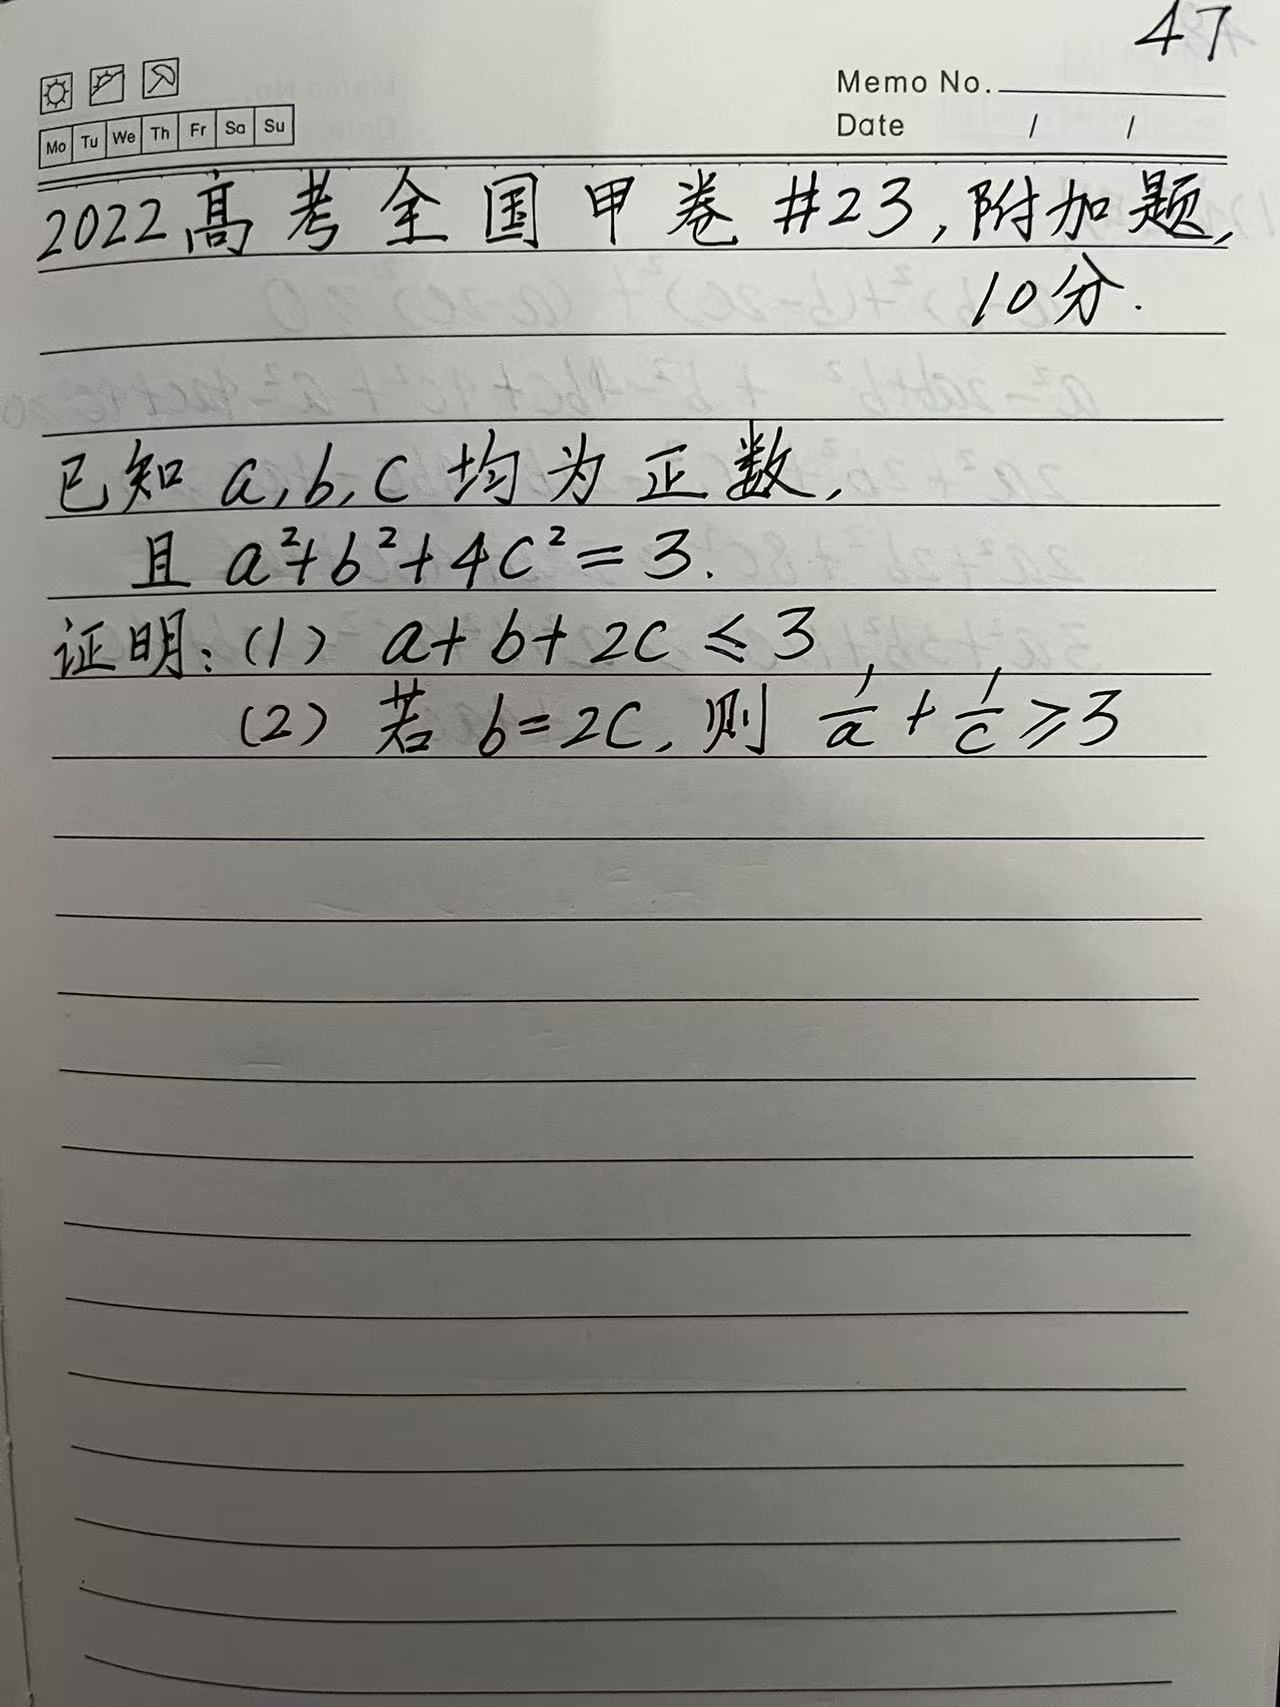 47
Memo No.
Mo Tu We Th Fr Sa Su
Date / /
2022高考全国甲卷#23,附加题,
10分.
已知 a,b,c 均为正数,
且 a²+b²+4c²=3.
证明:(1) a+b+2c≤3,
(2) 若 b=2c, 则 1/a + 1/c ≥3